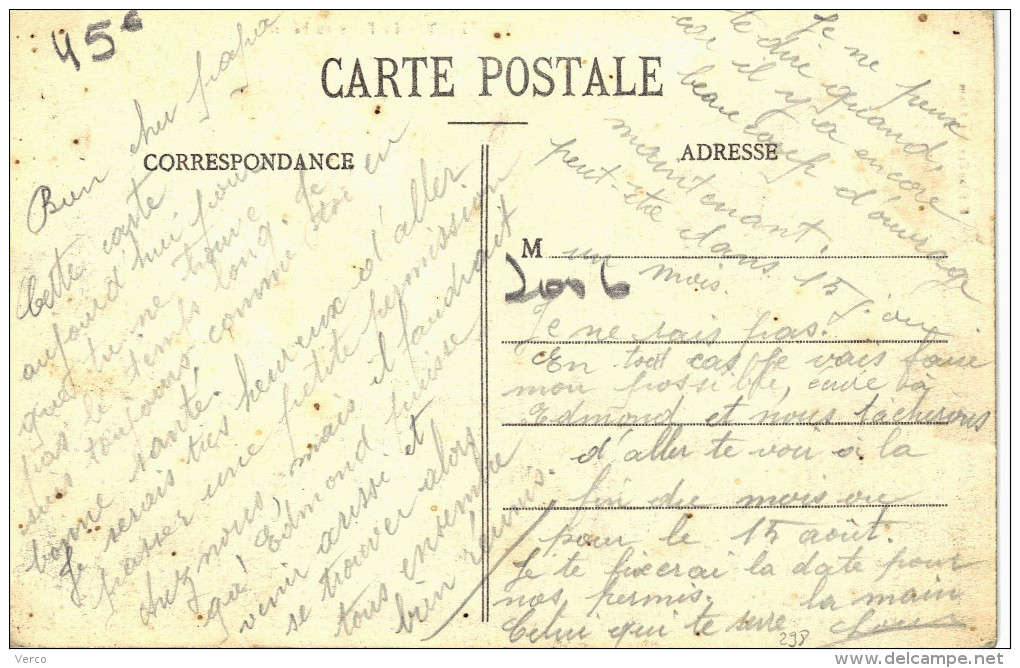 45c
CARTE POSTALE
CORRESPONDANCE
ADRESSE
M
Bien cher papa
Cette carte
aujourd'hui pour
que tu ne trouve
pas le temps long. Je
suis toujours comme toi en
bonne santé.
Je serais très heureux d'aller
passer une petite permission
chez nous, mais il faudrait
qu' Edmond puisse
venir aussi et
se trouver alors
tous ensemble
bien réunis.
Je ne peux
te dire quand,
car il y a encore
beaucoup d'ouvrage
maintenant.
peut-etre dans 15 j. ou
un mois.
Je ne sais pas.
En tout cas, je vais faire
mon possible, écrire à
Edmond et nous tâcherons
d'aller te voir à la
fin du mois ou
pour le 15 août.
Je te fixerai la date pour
nos permis.
la main
Celui qui te serre
298
Verco
www.delcampe.net